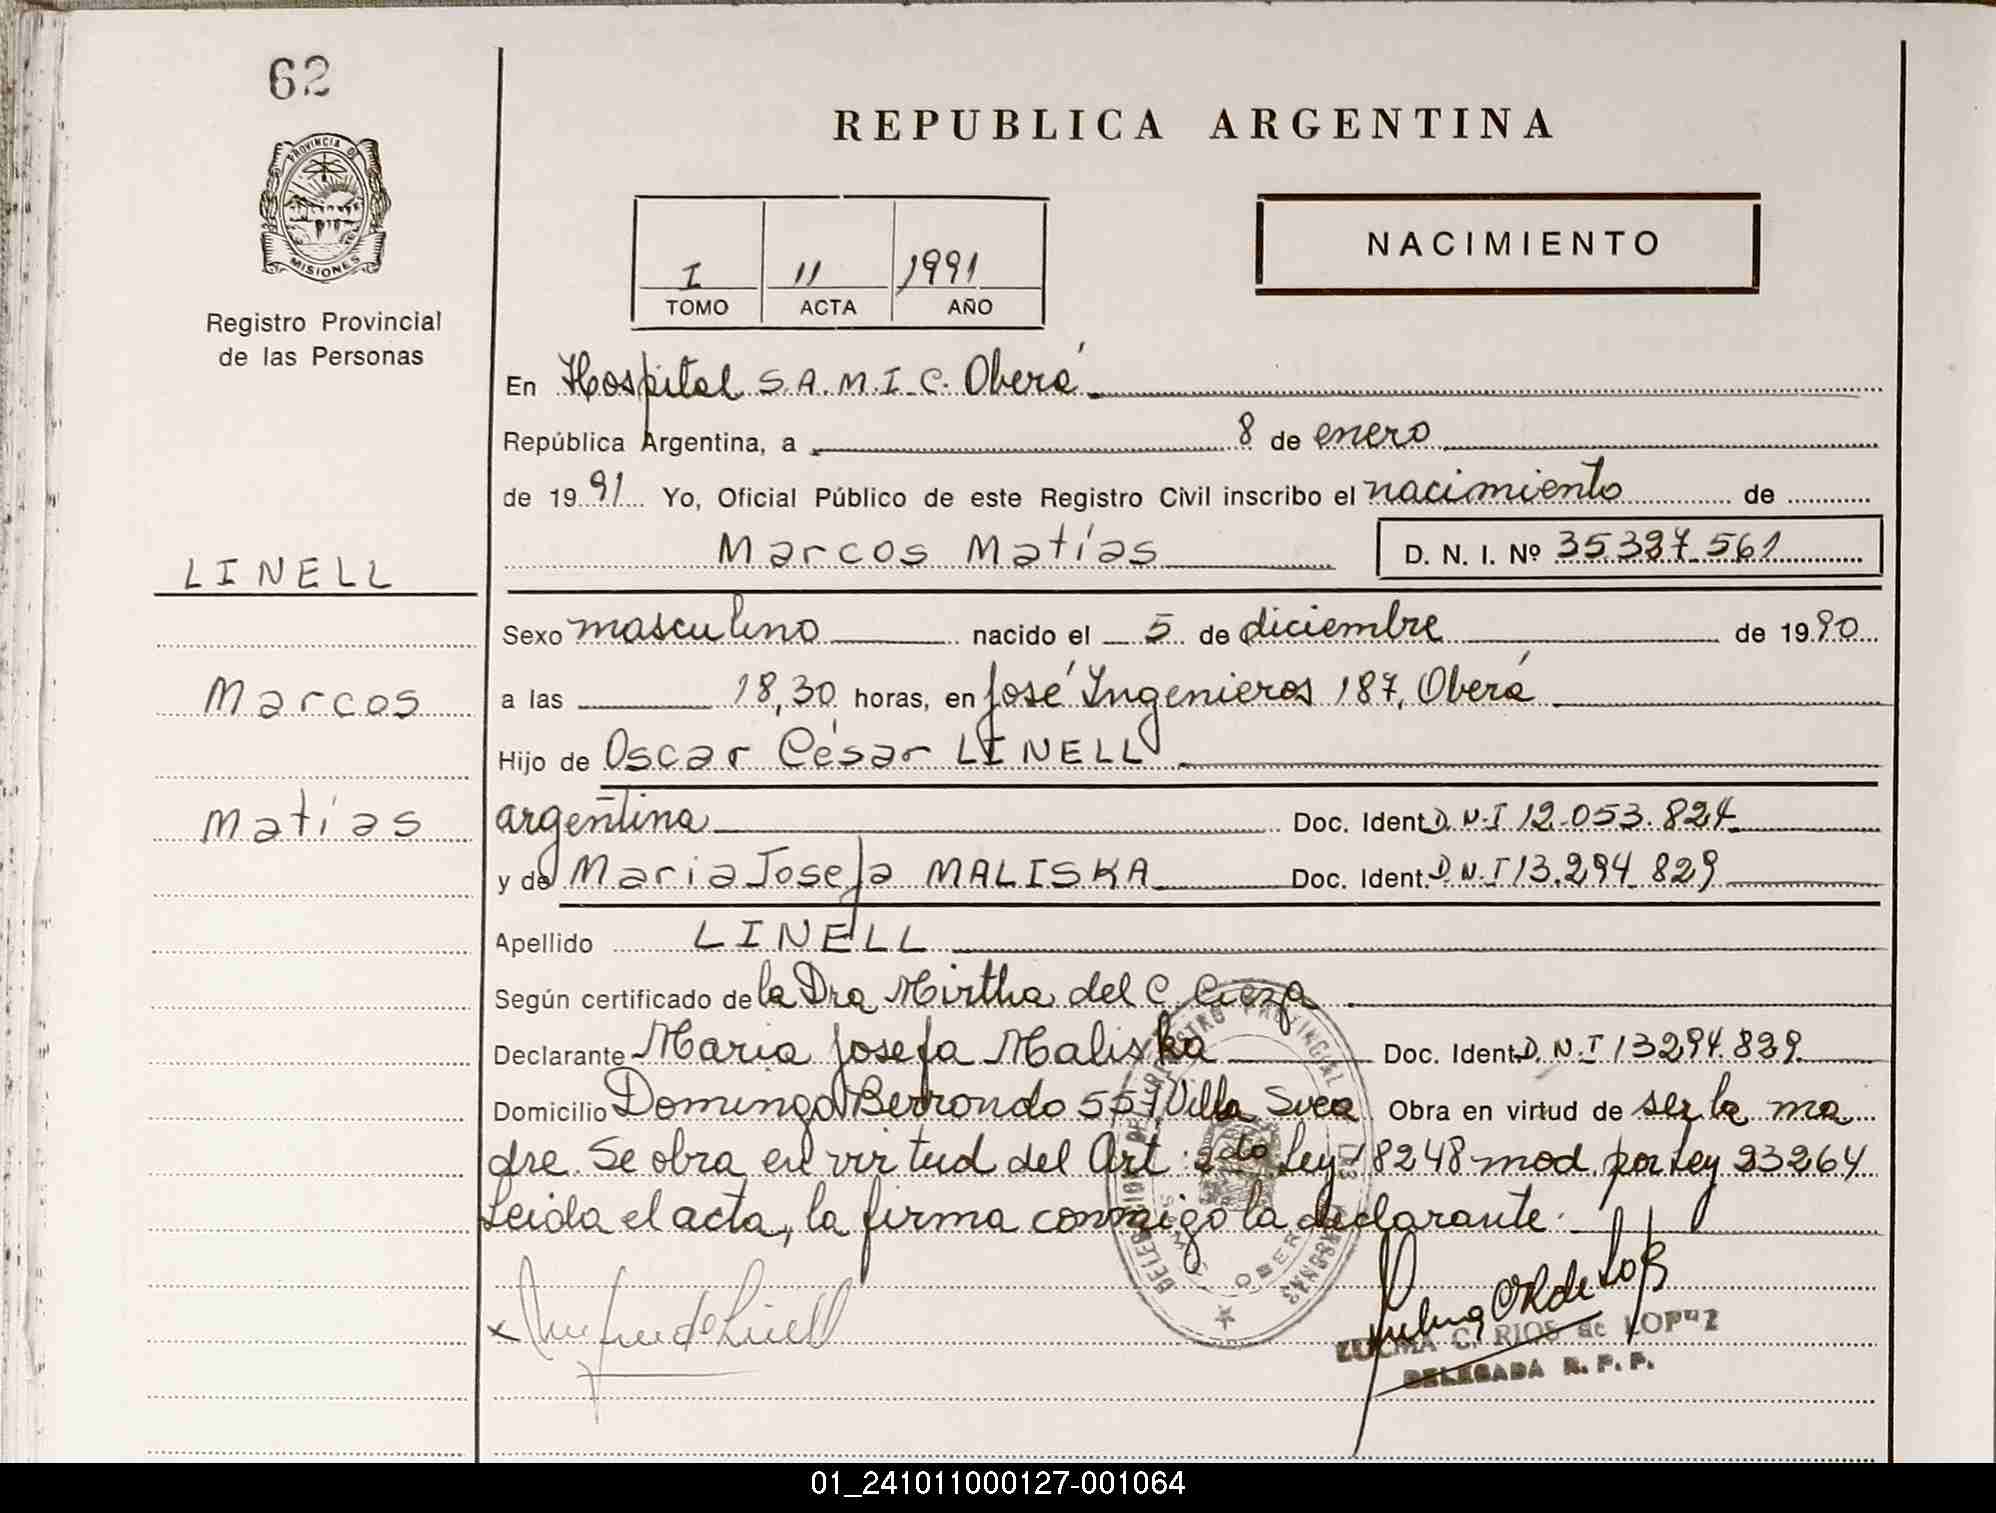 62
REPUBLICA ARGENTINA
PROVINCIA DE
MISIONES
Registro Provincial
de las Personas
I 11 1991
TOMO ACTA AÑO
NACIMIENTO
En Hospital S.A.M.I.C. Oberá
República Argentina, a 8 de enero
de 1991 Yo, Oficial Público de este Registro Civil inscribo el nacimiento de
Marcos Matías D. N. I. Nº 35.327.561
LINELL
Marcos
Matías
Sexo masculino nacido el 5 de diciembre de 1990
a las 18,30 horas, en José Ingenieros 187, Oberá
Hijo de Oscar César LINELL
argentina Doc. Ident. D.N.I 12.053.824
y de Maria Josefa MALISKA Doc. Ident. D.N.I 13.294.829
Apellido LINELL
Según certificado de la Dra Mirtha del C. Cieza
Declarante Maria Josefa Maliska Doc. Ident. D.N.I 13294.829
Domicilio Domingo Berrondo 557, Villa Svea Obra en virtud de ser la ma
dre. Se obra en virtud del Art: 2do Ley 18248 mod. por Ley 23264
Leida el acta, la firma conmigo la declarante.
x
ZULMA C. RIOS de LOPEZ
DELEGADA R. P. P.
01_241011000127-001064